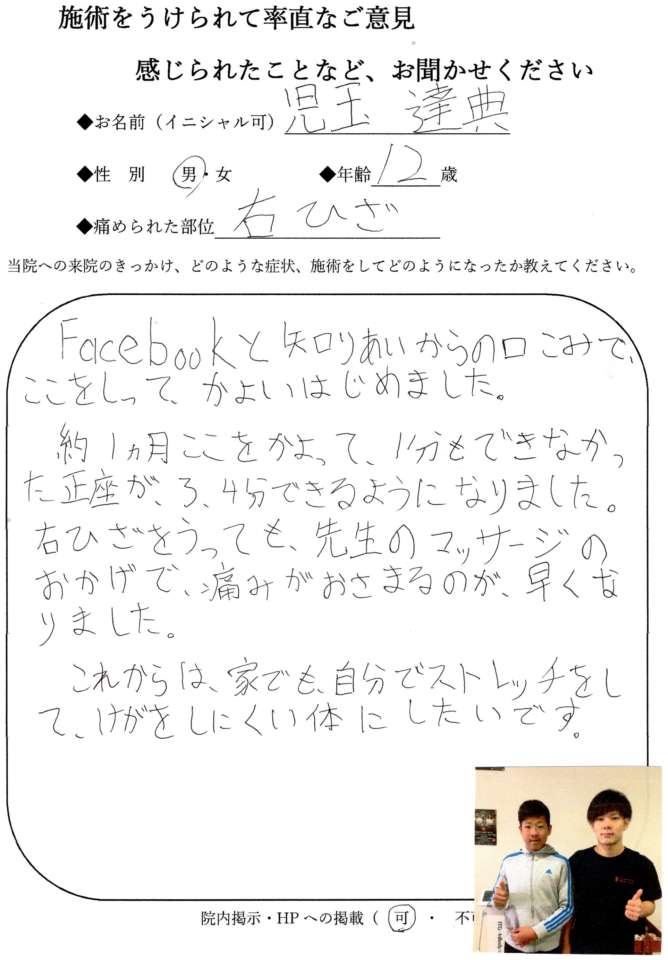 施術をうけられて率直なご意見
感じられたことなど、お聞かせください
◆お名前（イニシャル可） 児玉 達典
◆性 別 男・女 ◆年齢 12 歳
◆痛められた部位 右ひざ
当院への来院のきっかけ、どのような症状、施術をしてどのようになったか教えてください。
Facebookと知りあいからの口こみで、
ここをしって、かよいはじめました。
約1ヵ月ここをかよって、1分もできなかっ
た正座が、3、4分できるようになりました。
右ひざをうっても、先生のマッサージの
おかげで、痛みがおさまるのが、早くな
りました。
これからは、家でも、自分でストレッチをし
て、けがをしにくい体にしたいです。
院内掲示・HPへの掲載（ 可 ・ 不